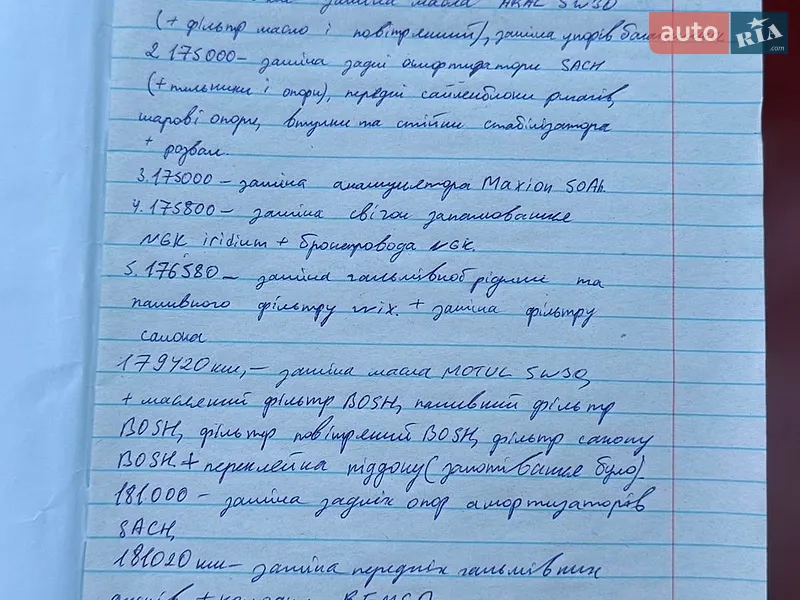 заміна масла ARAL 5W30
(+ фільтр масло і повітряний), заміна упорів бага
auto RIA .com
2. 175000 – заміна задні амортизатори SACH
(+ пильники і опори), передні сайленблоки рычагів,
шарові опори, втулки та стійки стабілізатора
+ розвал.
3. 175000 – заміна аккамулятора Maxion 50Ah.
4. 175800 – заміна свічок запалювання
NGK iridium + бронепровода NGK.
5. 176580 – заміна гальмівної рідини та
паливного фільтру wix. + заміна фільтру
салона
179420 км, – заміна масла MOTUL 5W30,
+ масляний фільтр BOSH, паливний фільтр
BOSH, фільтр повітряний BOSH, фільтр салону
BOSH. + переклейка піддону (запотівання було).
181.000 – заміна задніх опор амортизаторів
SACH,
181020 км – заміна передніх гальмівних